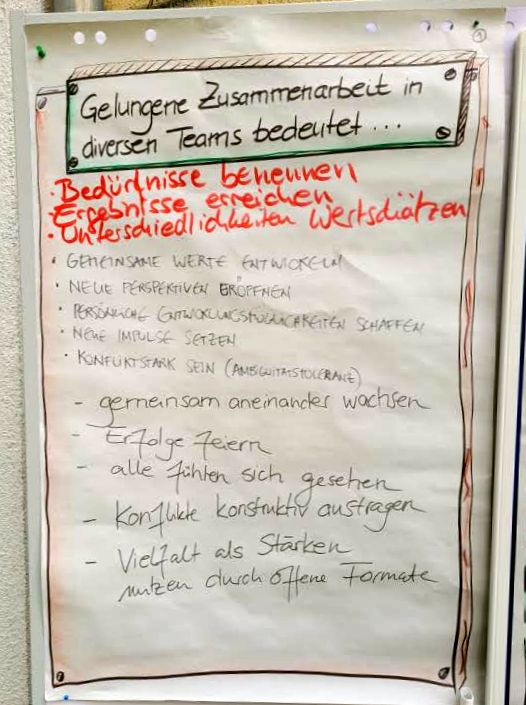 Gelungene Zusammenarbeit in
diversen Teams bedeutet...
· Bedürfnisse benennen
· Ergebnisse erreichen
· Unterschiedlichkeiten Wertschätzen
· GEMEINSAME WERTE ENTWICKELN
· NEUE PERSPEKTIVEN ERÖFFNEN
· PERSÖNLICHE ENTWICKLUNGSMÖGLICHKEITEN SCHAFFEN
· NEUE IMPULSE SETZEN
· KONFLIKTSTARK SEIN (AMBIGUITÄTSTOLERANZ)
- gemeinsam aneinander wachsen
- Erfolge feiern
- alle fühlen sich gesehen
- Konflikte konstruktiv austragen
- Vielfalt als Stärken
nutzen durch offene Formate